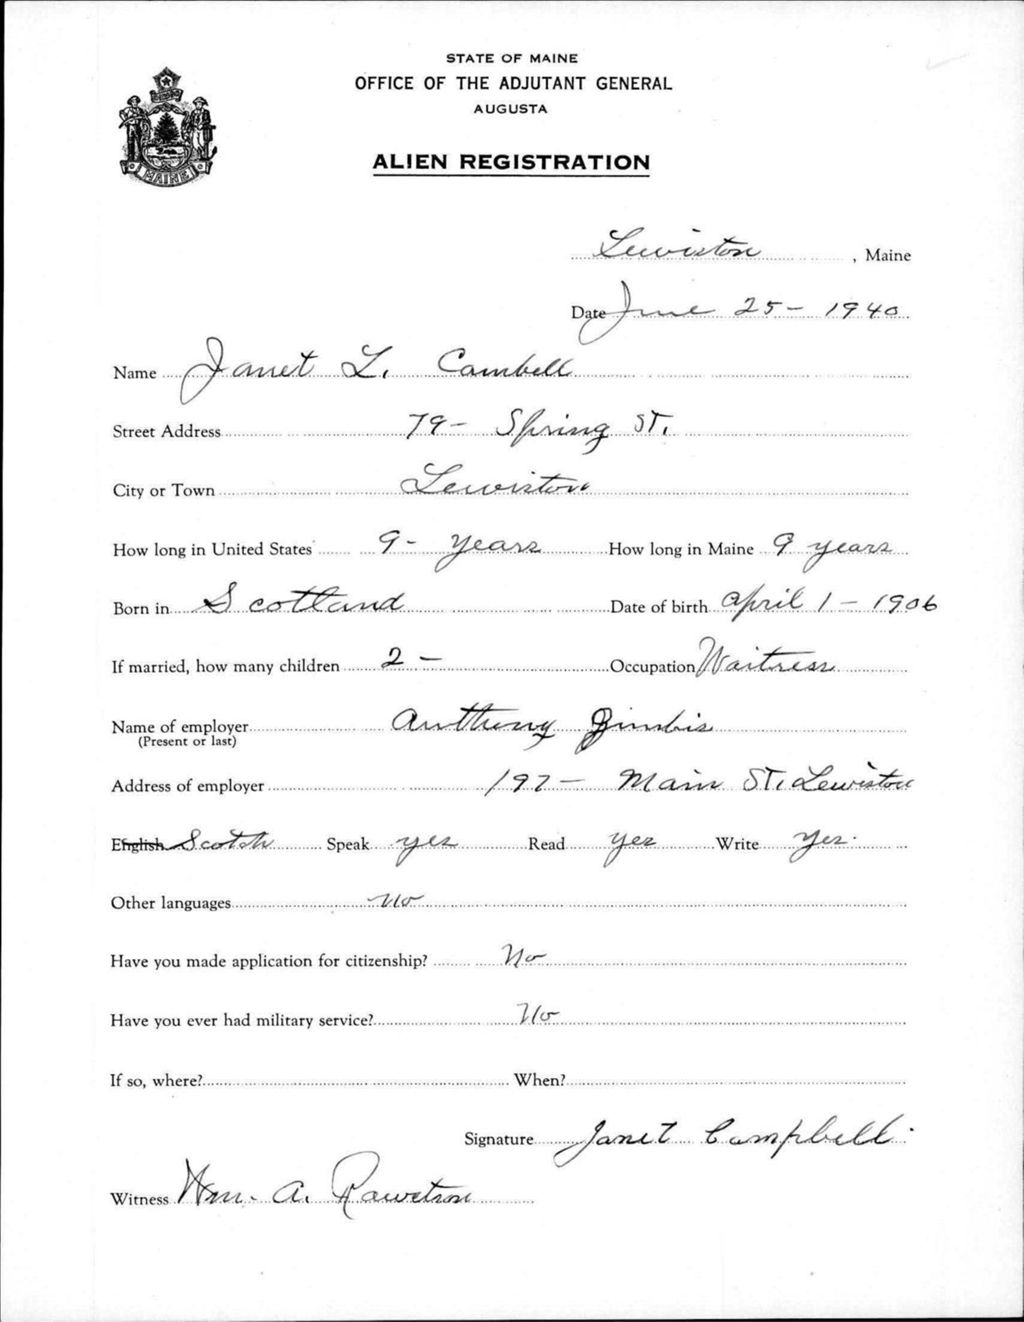 STATE OF MAINE
OFFICE OF THE ADJUTANT GENERAL
AUGUSTA
ALIEN REGISTRATION
MAINE
Lewiston, Maine
Date June 25 - 1940
Name Janet L. Cambell
Street Address 79 - Spring St.
City or Town Lewiston
How long in United States 9 - years How long in Maine 9 years
Born in Scotland Date of birth April 1 - 1906
If married, how many children 2 - Occupation Waitress
Name of employer Anthony
(Present or last)
Address of employer 197 - Main St. Lewiston
English Scotch Speak yes Read yes Write yes.
Other languages no
Have you made application for citizenship? No
Have you ever had military service? No
If so, where? When?
Signature Janet Campbell.
Witness Wm. A.